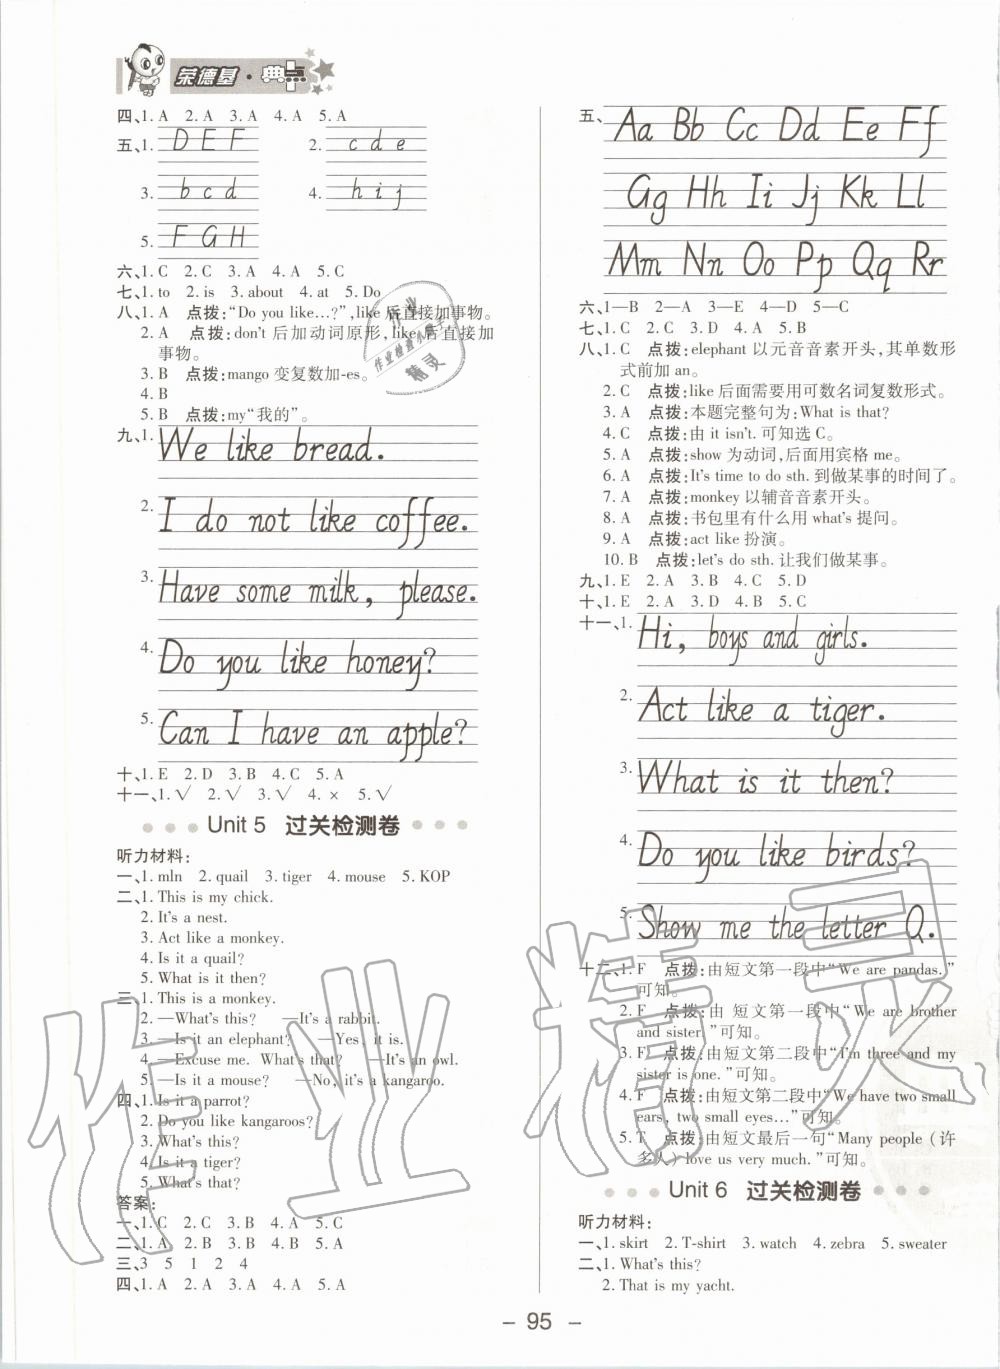 荣德基·典点
四、1. A 2. A 3. A 4. A 5. A
五、1. D E F 2. c d e
3. b c d 4. h i j
5. F G H
六、1. C 2. C 3. A 4. A 5. C
七、1. to 2. is 3. about 4. at 5. Do
八、1. A 点拨:“Do you like…?”,like 后直接加事物。
2. A 点拨:don't 后加动词原形,like 后直接加
事物。
3. B 点拨:mango 变复数加-es。
4. B
5. B 点拨:my“我的”。
九、1. We like bread.
2. I do not like coffee.
3. Have some milk, please.
4. Do you like honey?
5. Can I have an apple?
十、1. E 2. D 3. B 4. C 5. A
十一、1. √ 2. √ 3. √ 4. × 5. √
Unit 5 过关检测卷
听力材料:
一、1. mln 2. quail 3. tiger 4. mouse 5. KOP
二、1. This is my chick.
2. It's a nest.
3. Act like a monkey.
4. Is it a quail?
5. What is it then?
三、1. This is a monkey.
2. —What's this? —It's a rabbit.
3. —Is it an elephant? —Yes, it is.
4. —Excuse me. What's that? —It's an owl.
5. —Is it a mouse? —No, it's a kangaroo.
四、1. Is it a parrot?
2. Do you like kangaroos?
3. What's this?
4. Is it a tiger?
5. What's that?
答案:
一、1. C 2. C 3. B 4. A 5. C
二、1. A 2. B 3. B 4. B 5. A
三、3 5 1 2 4
四、1. A 2. A 3. A 4. A 5. A
五、Aa Bb Cc Dd Ee Ff
Gg Hh Ii Jj Kk Ll
Mm Nn Oo Pp Qq Rr
六、1—B 2—A 3—E 4—D 5—C
七、1. C 2. C 3. D 4. A 5. B
八、1. C 点拨:elephant 以元音音素开头,其单数形
式前加 an。
2. C 点拨:like 后面需要用可数名词复数形式。
3. A 点拨:本题完整句为:What is that?
4. C 点拨:由 it isn't. 可知选 C。
5. A 点拨:show 为动词,后面用宾格 me。
6. A 点拨:It's time to do sth. 到做某事的时间了。
7. A 点拨:monkey 以辅音音素开头。
8. A 点拨:书包里有什么用 what's 提问。
9. A 点拨:act like 扮演。
10. B 点拨:let's do sth. 让我们做某事。
九、1. E 2. A 3. B 4. C 5. D
十、1. E 2. A 3. D 4. B 5. C
十一、1. Hi, boys and girls.
2. Act like a tiger.
3. What is it then?
4. Do you like birds?
5. Show me the letter Q.
十二、1. F 点拨:由短文第一段中“We are pandas.”
可知。
2. F 点拨:由 短文第一段中“We are brother
and sister.”可知。
3. F 点拨:由短文第二段中“I'm three and my
sister is one.”可知。
4. F 点拨:由短文第二段中“We have two small
ears, two small eyes…”可知。
5. T 点拨:由短文最后一句“Many people (许
多人) love us very much.”可知。
Unit 6 过关检测卷
听力材料:
一、1. skirt 2. T-shirt 3. watch 4. zebra 5. sweater
二、1. What's this?
2. That is my yacht.
- 95 -
作业精灵